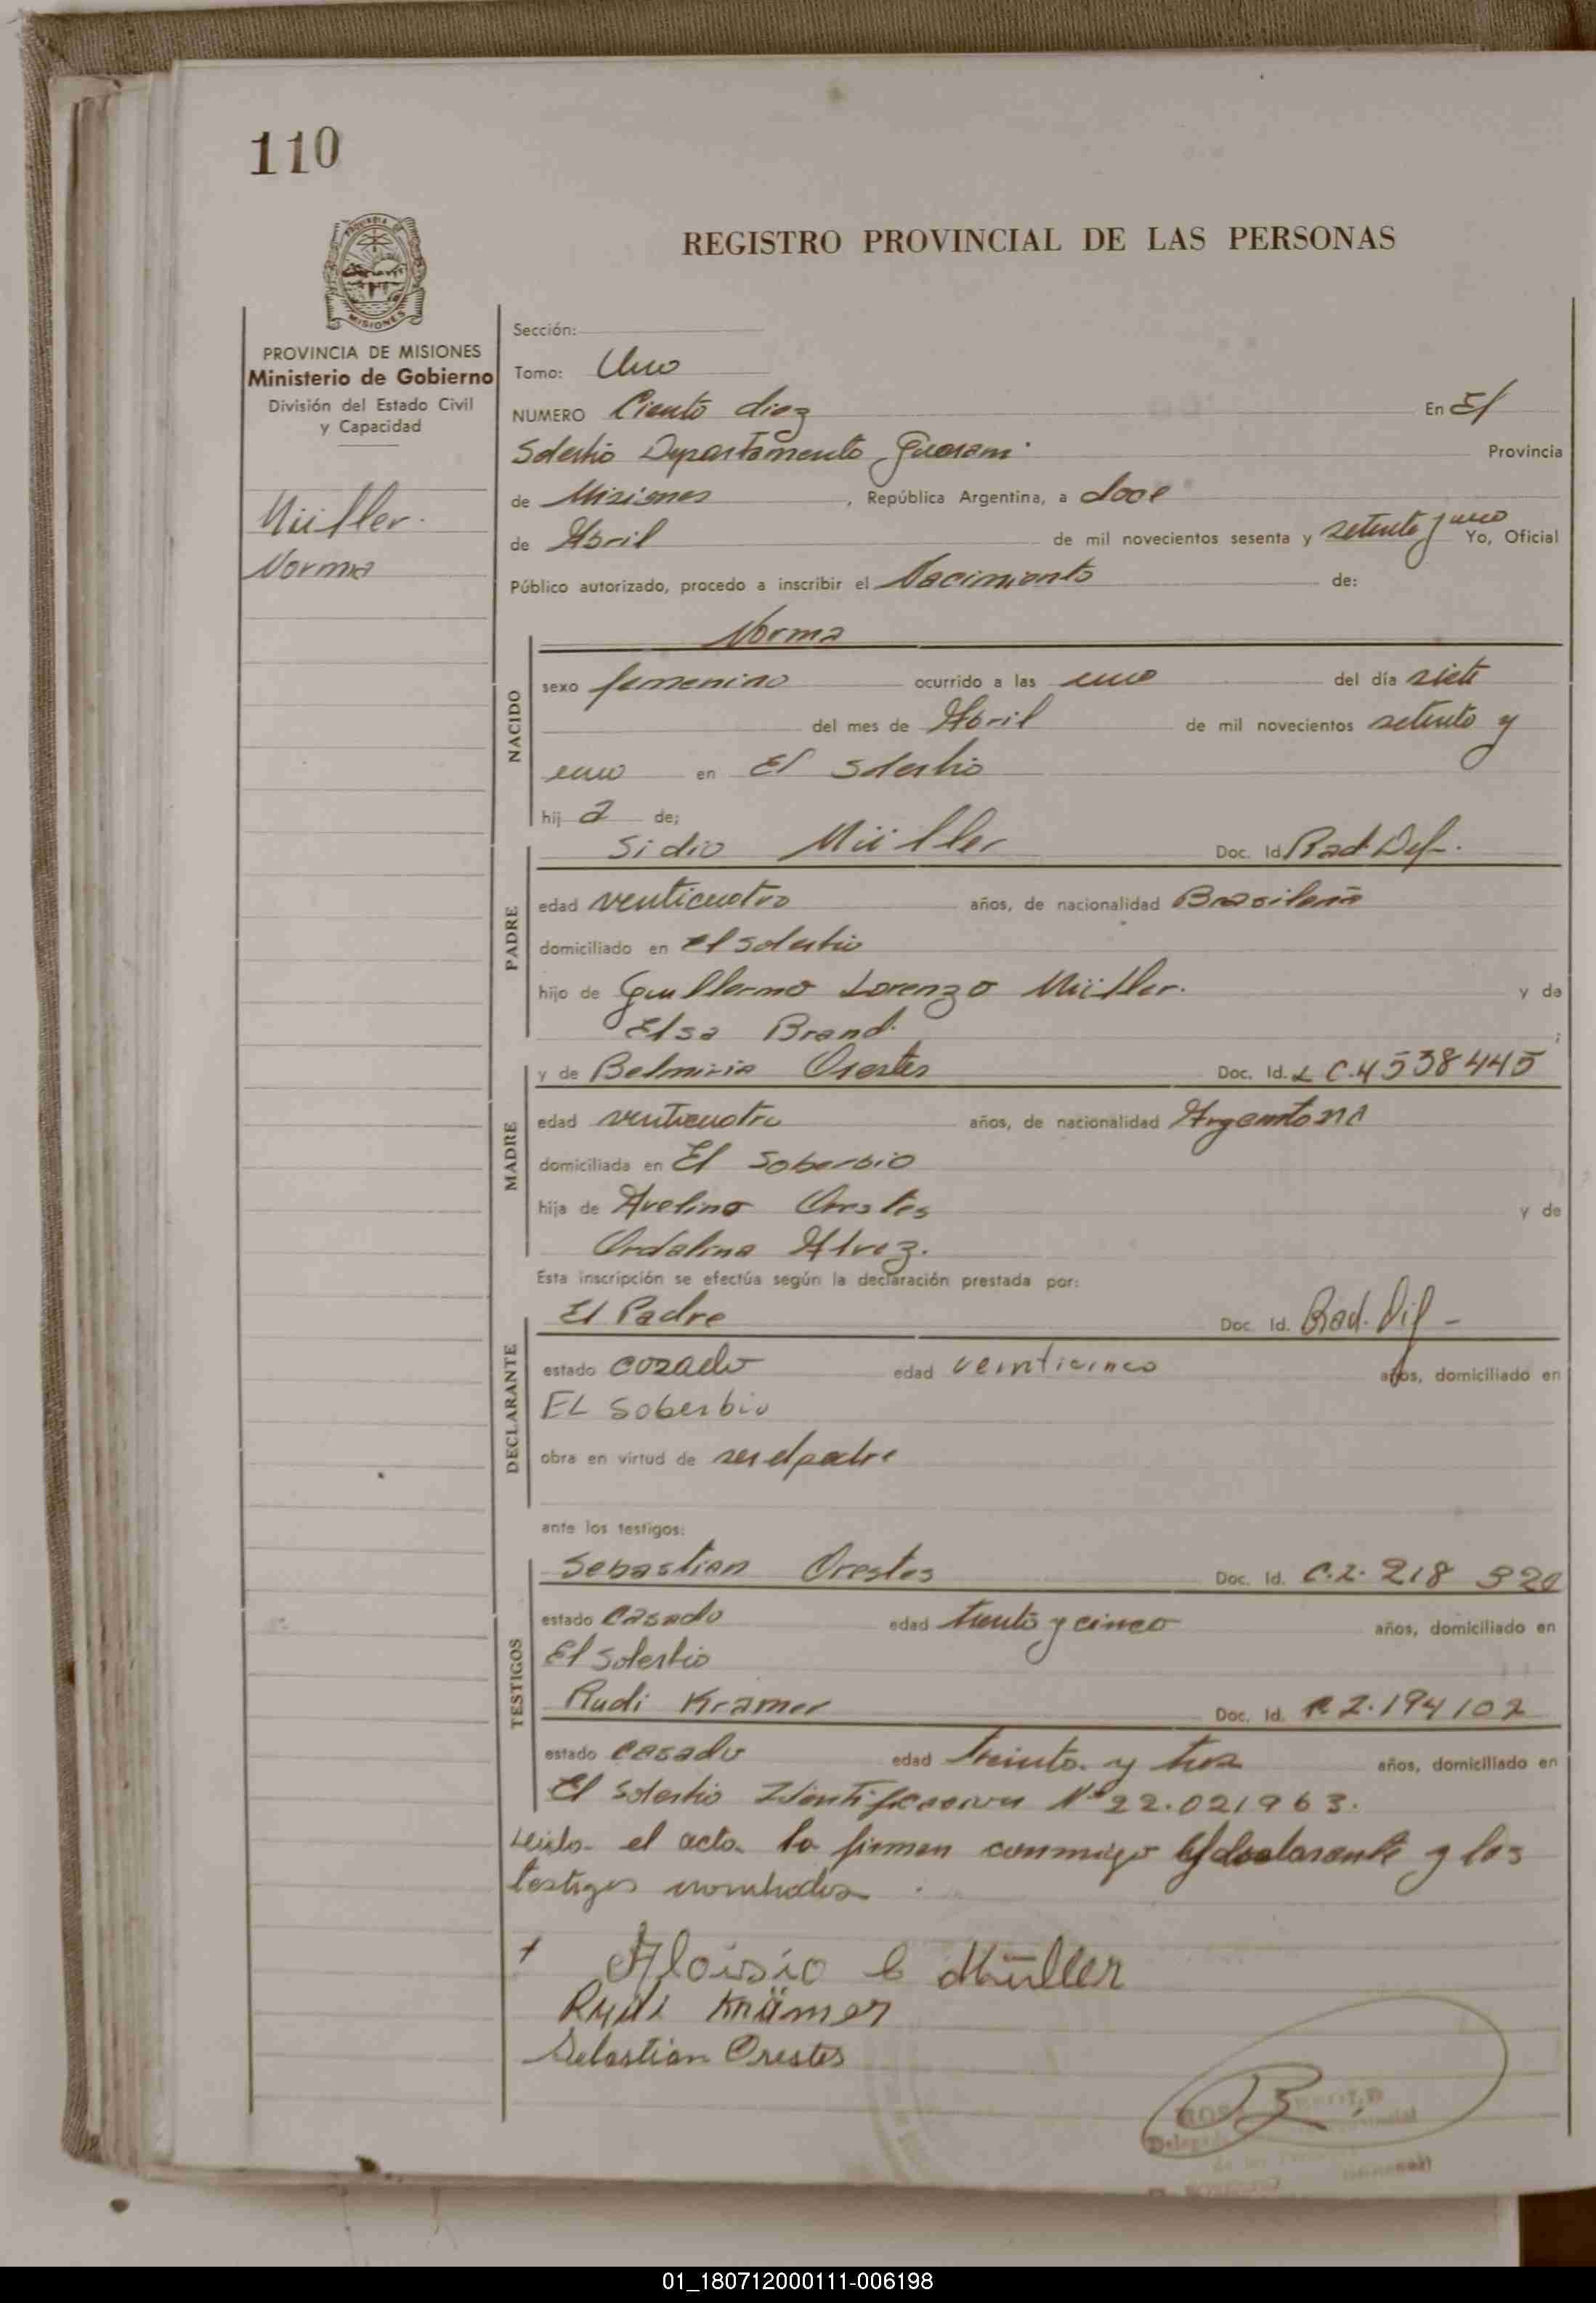 110
PROVINCIA DE MISIONES
REGISTRO PROVINCIAL DE LAS PERSONAS
PROVINCIA DE MISIONES
Ministerio de Gobierno
División del Estado Civil
y Capacidad
Müller.
Norma
Sección:
Tomo: Uno
NUMERO Ciento diez En El
Soberbio Departamento Guarani Provincia
de Misiones, República Argentina, a doce
de Abril de mil novecientos sesenta y setenta y uno Yo, Oficial
Público autorizado, procedo a inscribir el Nacimiento de:
NACIDO
Norma
sexo femenino ocurrido a las uno del día siete
del mes de Abril de mil novecientos setenta y
uno en El Soberbio
hij a de;
PADRE
Sidio Müller Doc. Id. Rad. Def.
edad venticuatro años, de nacionalidad Brasileña
domiciliado en El Soberbio
hijo de Guillermo Lorenzo Müller. y de
Elsa Brand. ;
MADRE
y de Belmiria Orestes Doc. Id. L C. 4538445
edad venticuatro años, de nacionalidad Argentona
domiciliada en El Soberbio
hija de Avelino Orestes y de
Ordalina Alvez.
Esta inscripción se efectúa según la declaración prestada por:
DECLARANTE
El Padre Doc. Id. Rad. Dif -
estado casado edad veinticinco años, domiciliado en
EL Soberbio
obra en virtud de ser el padre
ante los testigos:
TESTIGOS
Sebastian Orestes Doc. Id. C.I. 218 320
estado casado edad trenta y cinco años, domiciliado en
El Soberbio
Rudi Kramer Doc. Id. C I. 194102
estado casado edad treinta y tres años, domiciliado en
El Soberbio Identificacion Nº 22.021963.
Leida el acta la firman conmigo el declarante y los
testigos nombrados
+ Aloisio C Müller
Rudi Krämer
Sebastián Orestes
01_180712000111-006198